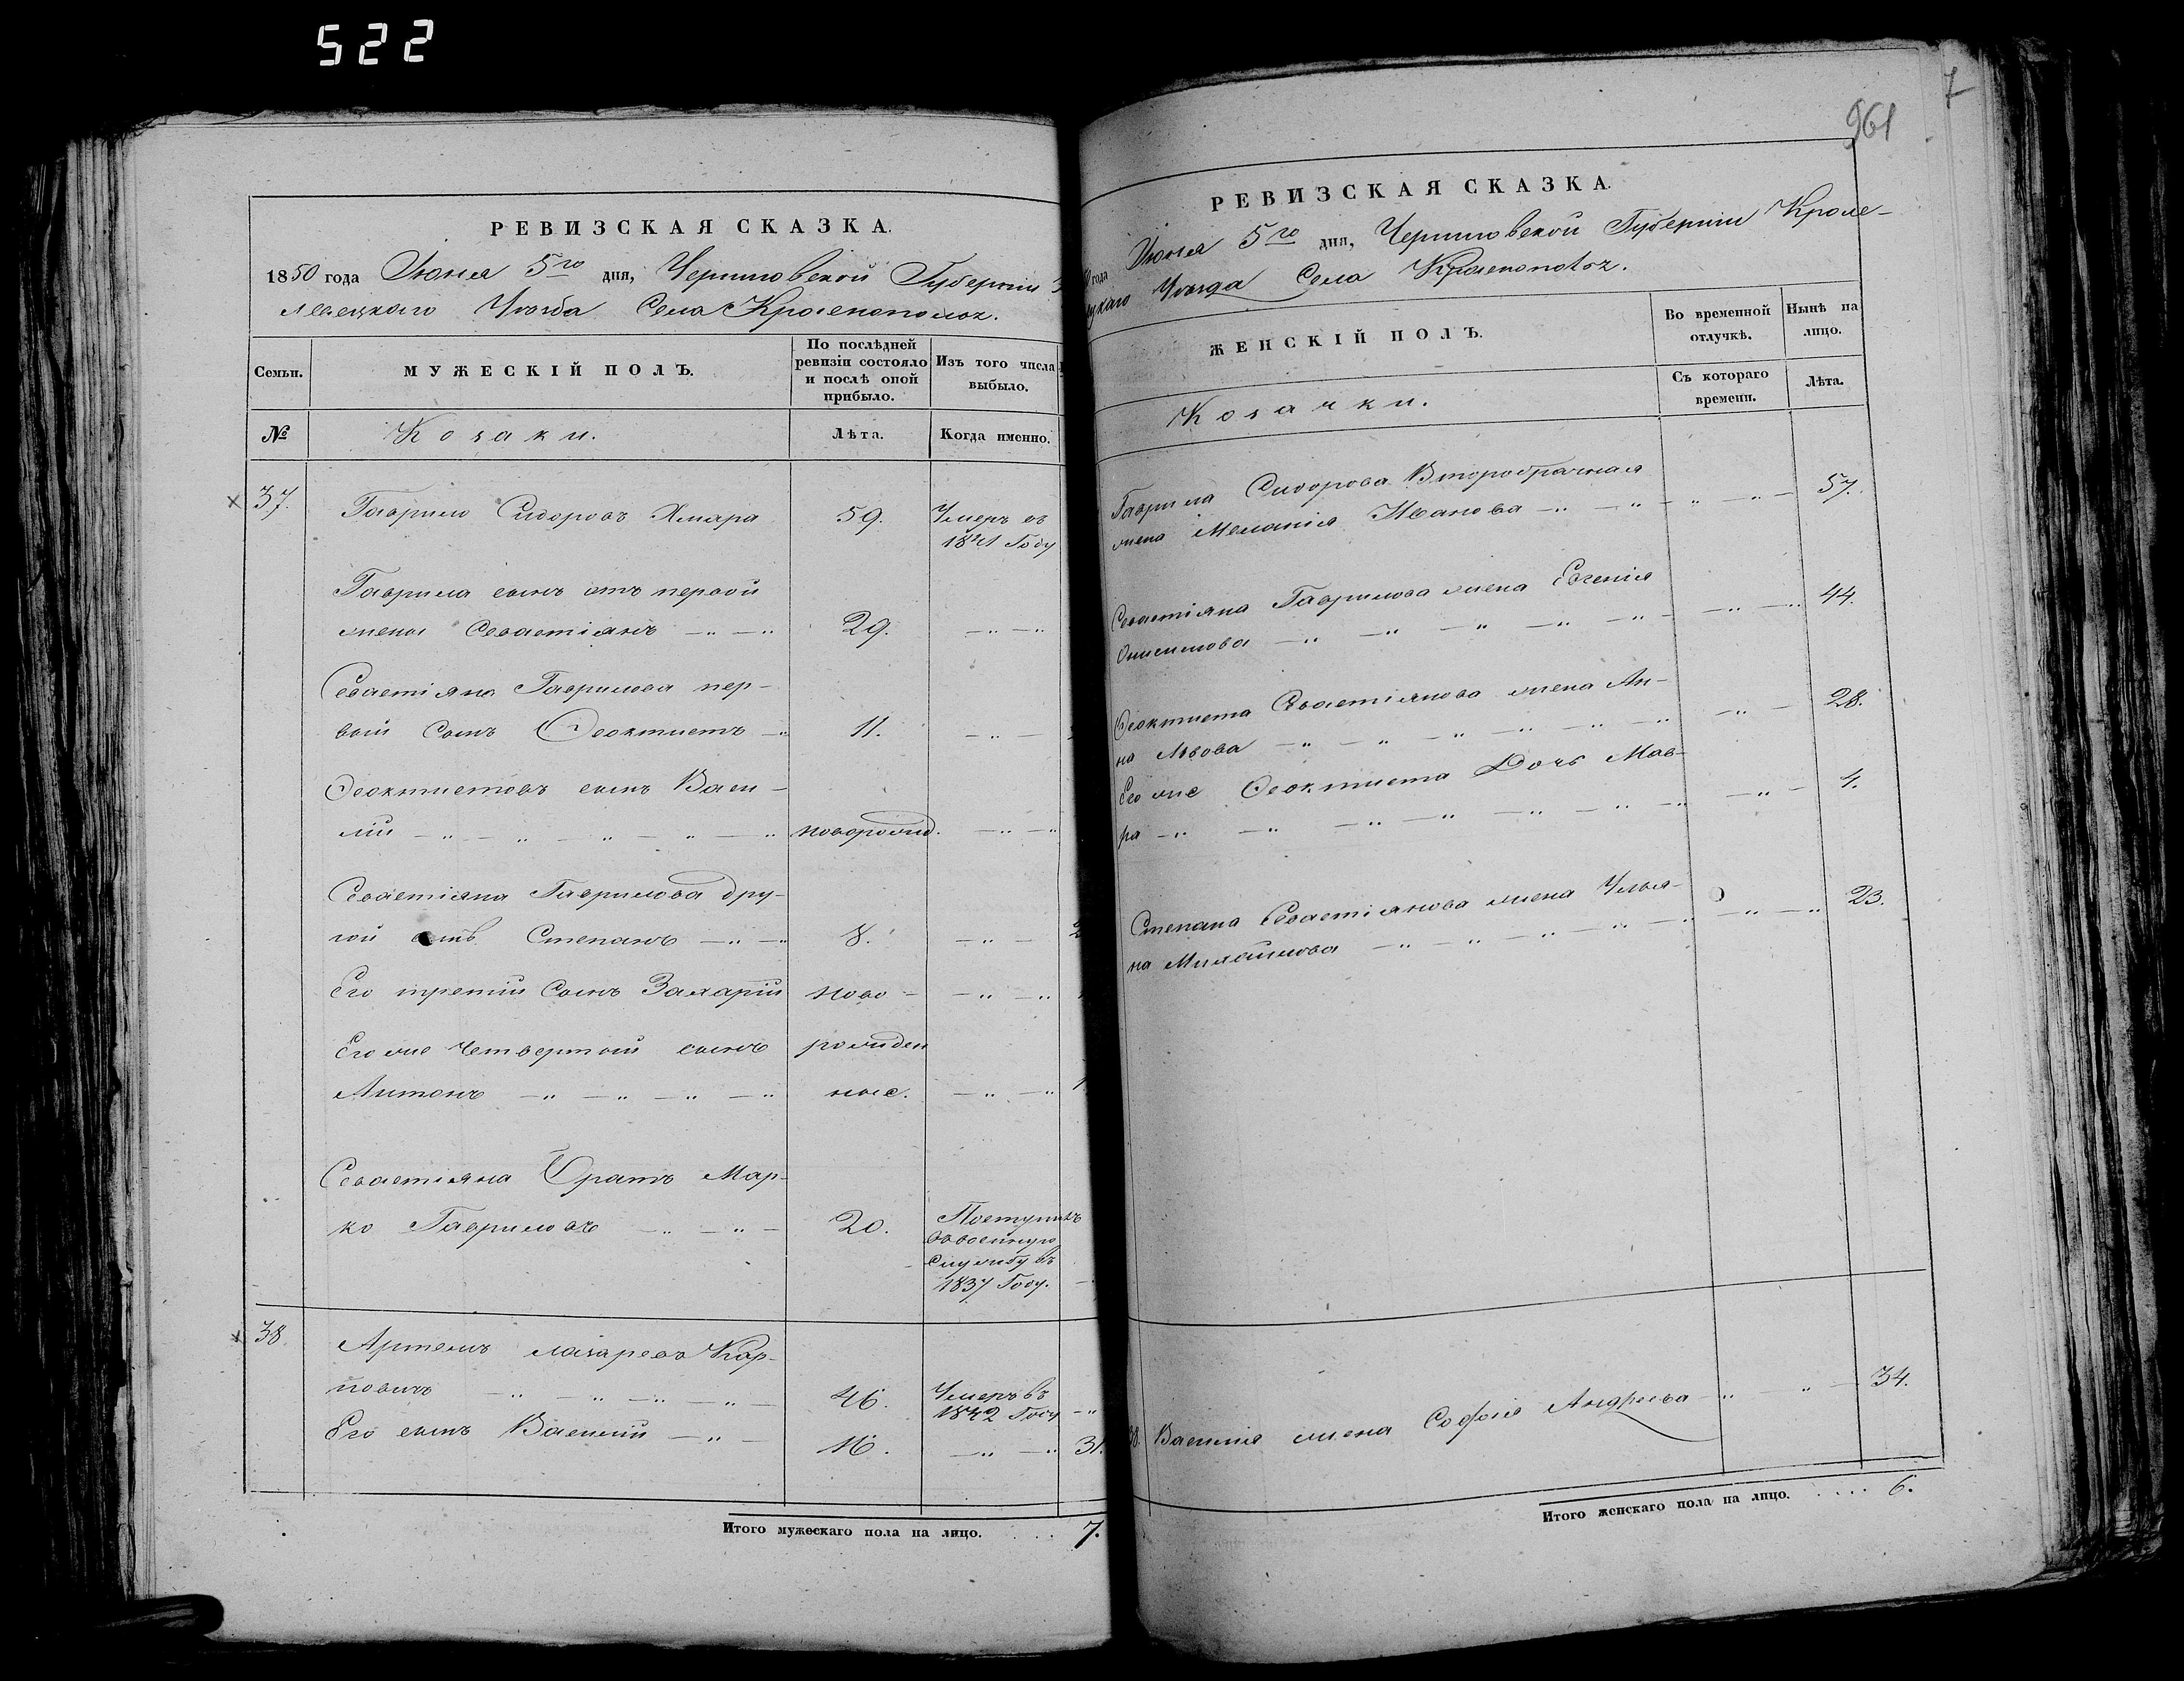 522
РЕВИЗСКАЯ СКАЗКА.
1850 года Іюня 5го дня, Черниговской Губерніи
левецкаго Уѣзда Села Красенополок.
Семьи.
МУЖЕСКІЙ ПОЛЪ.
По послѣдней
ревизіи состояло
и послѣ оной
прибыло.
Изъ того числа
выбыло.
№
Козаки.
Лѣта.
Когда именно.
37.
Гаврило Сидоровъ Хмара 59. Умеръ въ
1841 Году
Гаврила сынъ отъ первой
жены Севастіянъ 29.
Севастіяна Гаврилова пер-
вый Сынъ Феоктистъ 11.
Феоктистовъ сынъ Васи-
лій новорожд.
Севастіяна Гаврилова дру-
гой сынъ Степанъ 8.
Его третій Сынъ Захарій ново-
Его же Четвертый сынъ рожден
Антонъ ные.
Севастіяна Братъ Мар-
ко Гавриловъ 20. Поступилъ
въ военную
службу въ
1837 Году.
38.
Артемъ Лазаревъ Кар-
повичъ 46. Умеръ въ
1842 Году
Его сынъ Василій 16. 31.
Итого мужескаго пола на лицо. . . . 7.
7
961
РЕВИЗСКАЯ СКАЗКА.
года Іюня 5го дня, Черниговской Губерніи Кроле-
цкаго Уѣзда Села Красенополок.
ЖЕНСКІЙ ПОЛЪ.
Во временной
отлучкѣ.
Нынѣ на
лицо.
Съ котораго
времени.
Лѣта.
Козачки.
Гаврила Сидорова Второбрачная
жена Меланія Иванова 57.
Севастіяна Гаврилова жена Евгенія
Онисимова 44.
Феоктиста Севастіянова жена Ан-
на Львова 28.
Его же Феоктиста Дочь Мав-
ра 4.
Степана Севастіянова жена Улья-
на Михайлова 23.
38. Василія жена Софія Андреева 34.
Итого женскаго пола на лицо. . . . . 6.